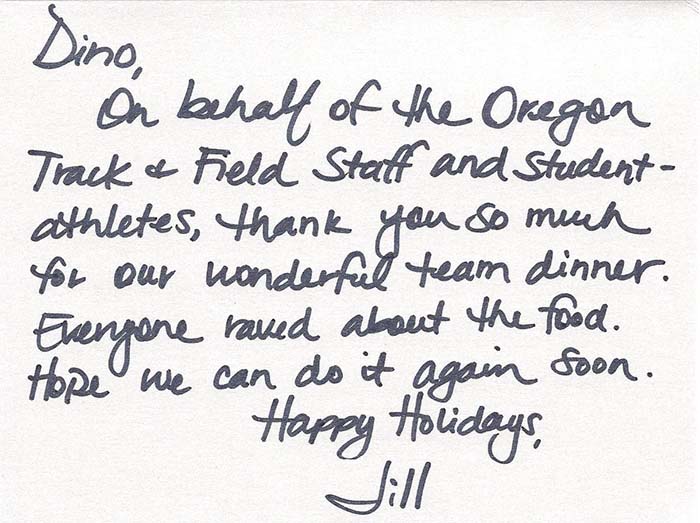 Dino,
On behalf of the Oregon
Track & Field Staff and student-
athletes, thank you so much
for our wonderful team dinner.
Everyone raved about the food.
Hope we can do it again soon.
Happy Holidays,
Jill